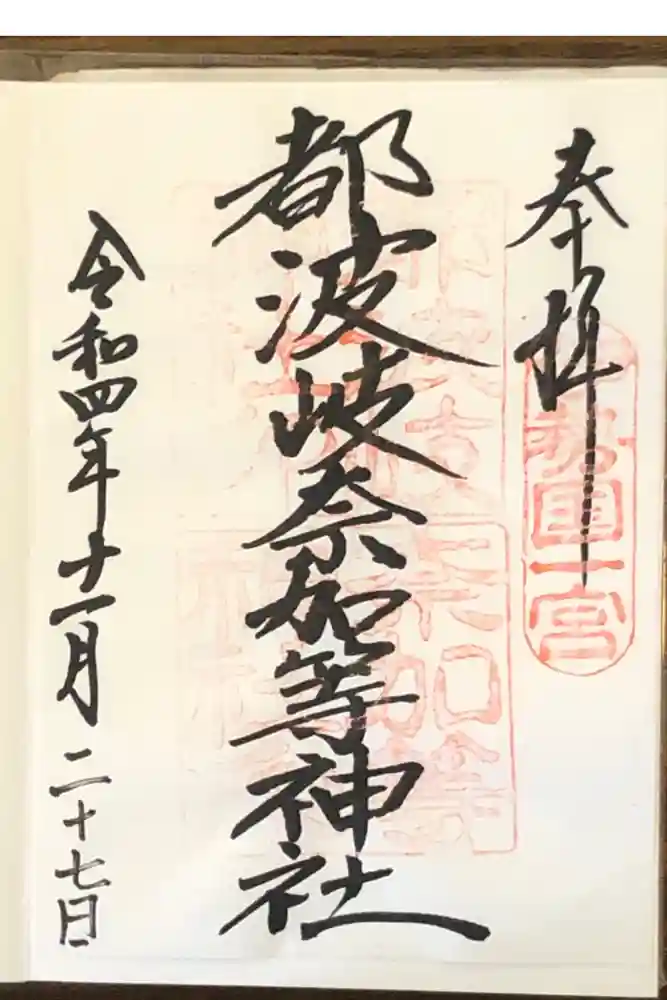 奉拝
伊勢国一宮
都波岐奈加等神社
令和四年十一月二十七日